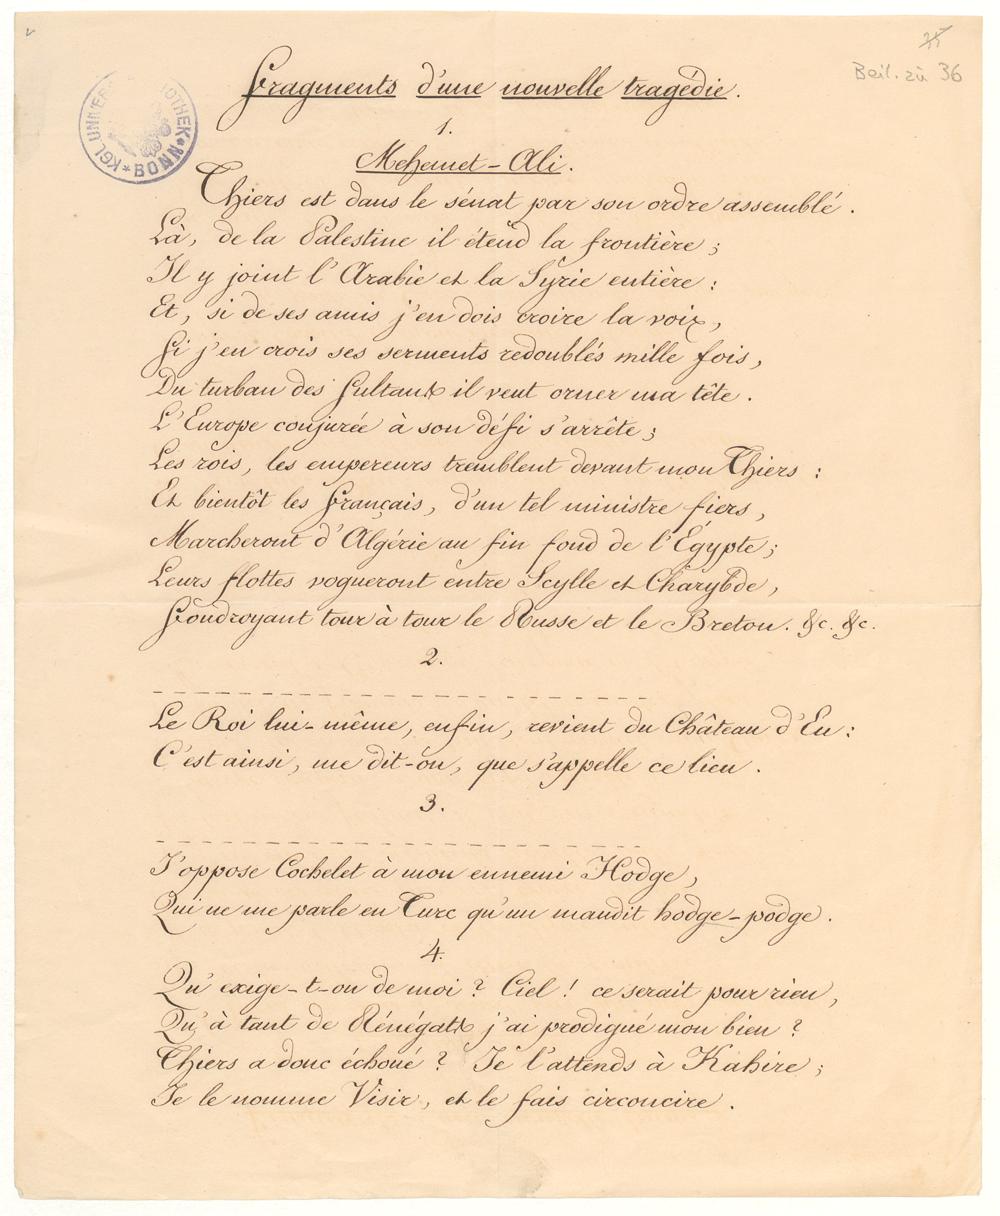 25
Beil. zu 36
KGL UNIVERS OTHEK * BONN *
Fragments d'une nouvelle tragédie.
1.
Mehemet-Ali.
Thiers est dans le sénat par son ordre assemblé.
Là, de la Palestine il étend la frontière;
Il y joint l'Arabie et la Syrie entière:
Et, si de ses amis j'en dois croire la voix,
Si j'en crois ses serments redoublés mille fois,
Du turban des Sultans il veut orner ma tête.
L'Europe conjurée à son défi s'arrête;
Les rois, les empereurs tremblent devant mon Thiers:
Et bientôt les Français, d'un tel ministre fiers,
Marcheront d'Algérie au fin fond de l'Égypte;
Leurs flottes vogueront entre Scylle et Charybde,
Foudroyant tour à tour le Russe et le Breton. &c. &c.
2.
Le Roi lui-même, enfin, revient du Château d'Eu:
C'est ainsi, me dit-on, que s'appelle ce lieu.
3.
J'oppose Cochelet à mon ennemi Hodge,
Qui ne me parle en Turc qu'un maudit hodge-podge.
4.
Qu'exige-t-on de moi? Ciel! ce serait pour rien,
Qu'à tant de Rénégats j'ai prodigué mon bien?
Thiers a donc échoué? Je l'attends à Kahire;
Je le nomme Visir, et le fais circoncire.